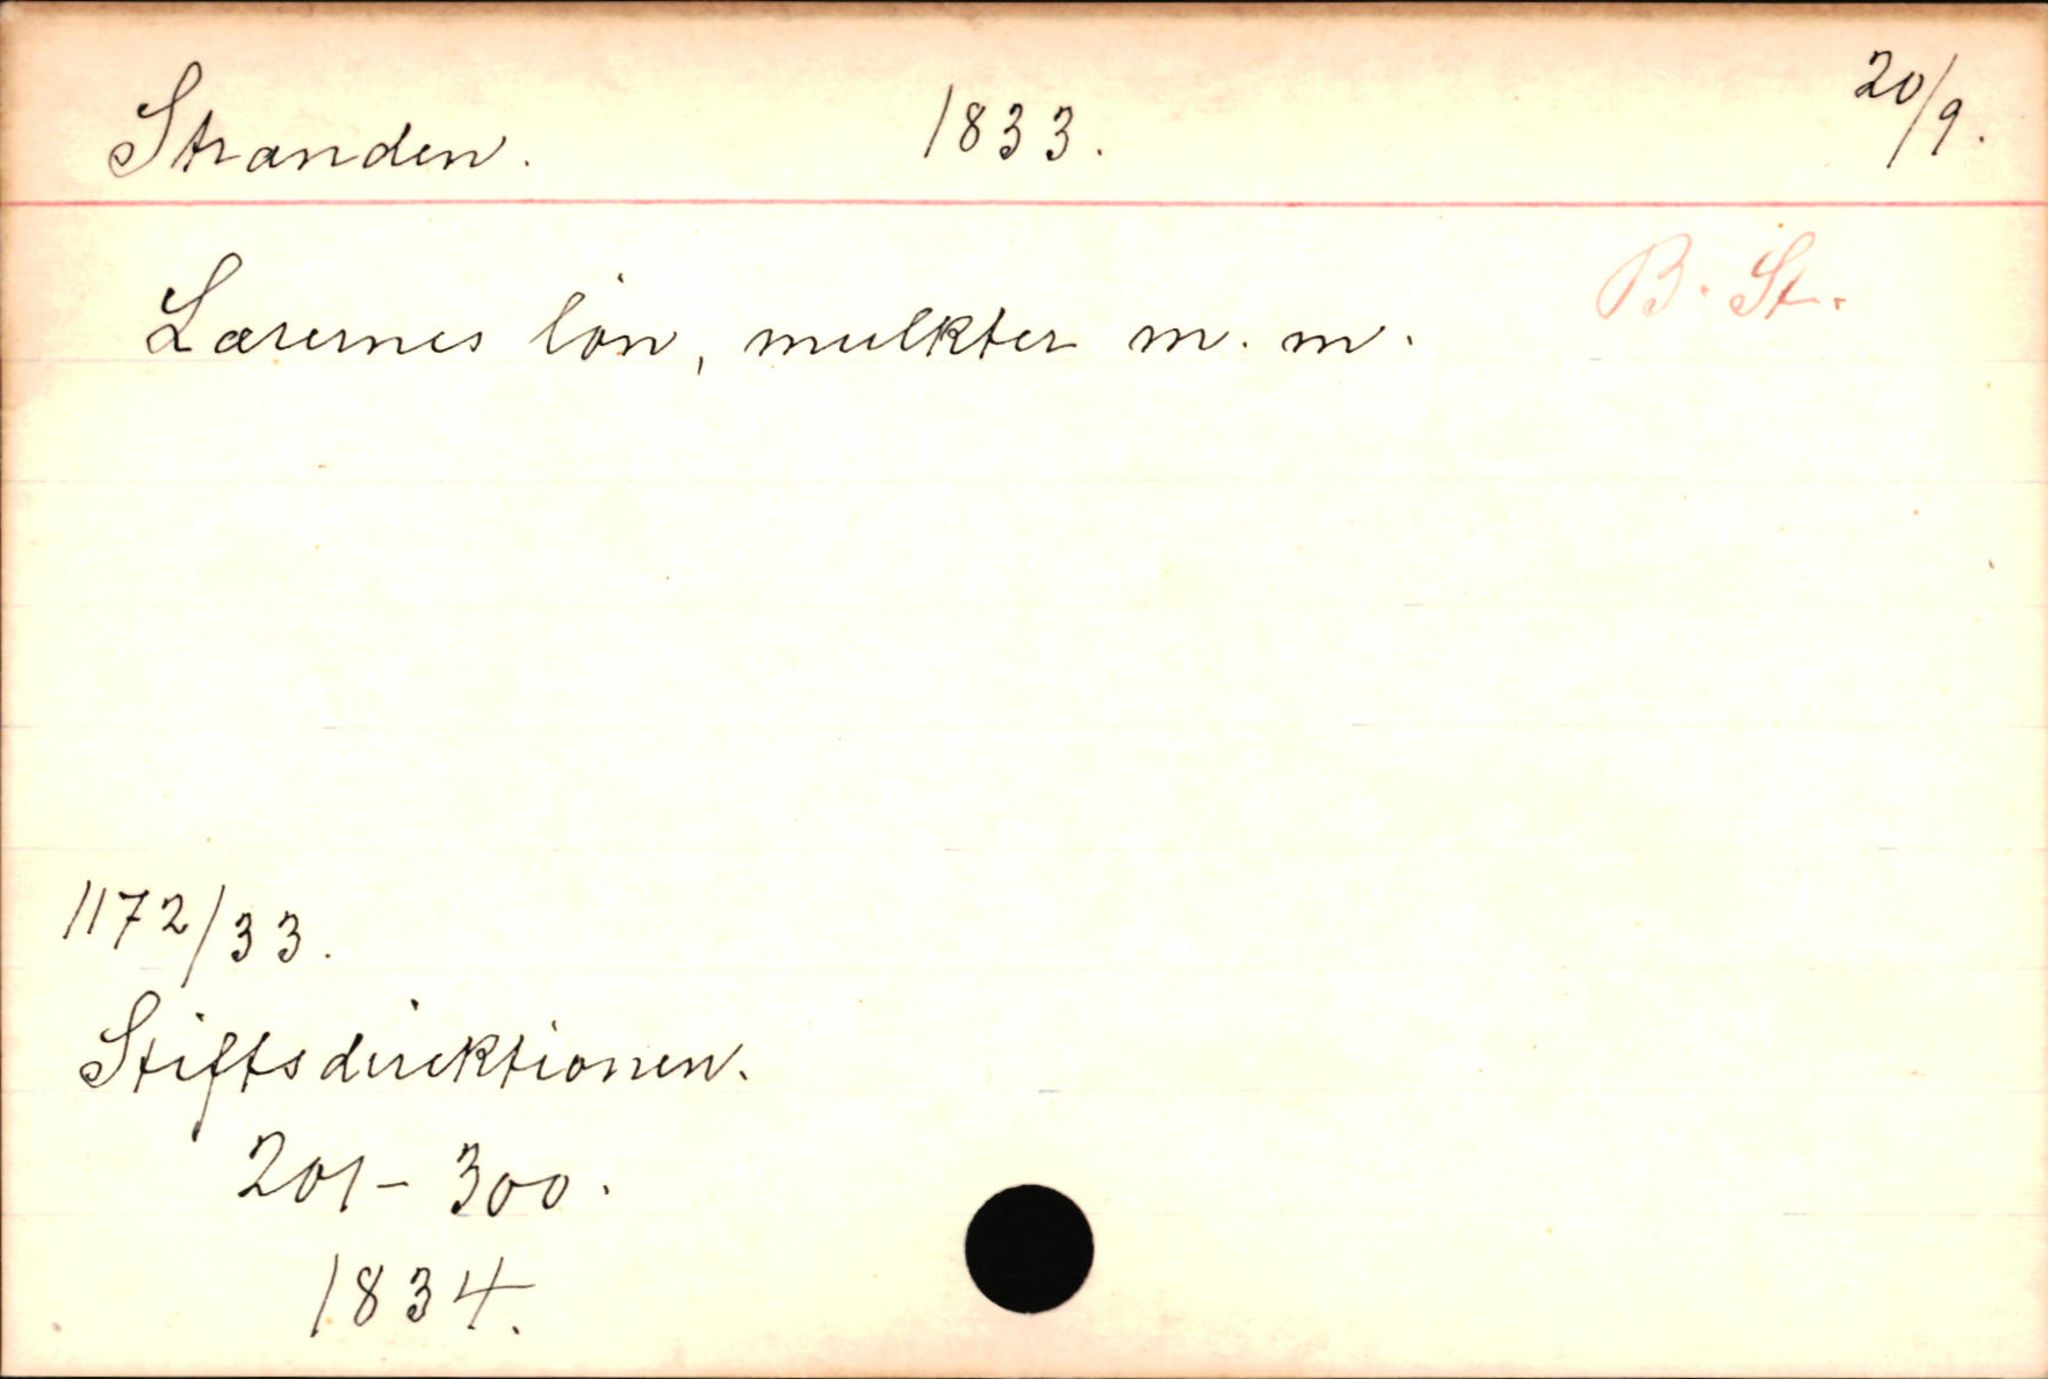 Stranden. 1833. 20/9.
B. St.
Lærernes løn, mulkter m. m.
1172/33.
Stiftsdirektionen.
201-300.
1834.